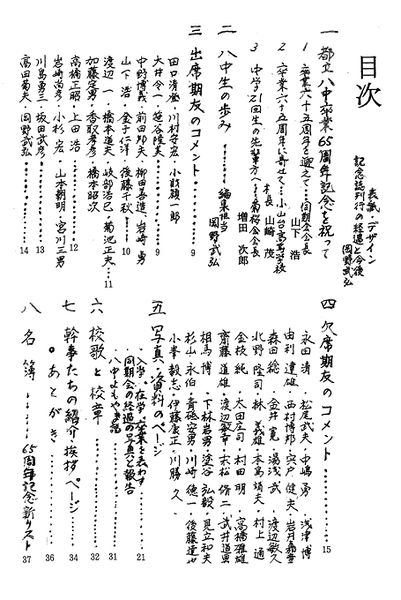 目次
表紙・デザイン
記念誌刊行の経過と今後
岡野武弘
一 都立八中卒業65周年記念を祝って
1 卒業六十五周年を迎えて…同期会会長
山下 浩
2 卒業六十五周年に寄せて…小山台高等学校
校長 山崎 茂
3 中学21回生の先輩方へ…菊桜会会長
増田 次郎
二 八中生の歩み
編集担当
岡野武弘
三 出席期友のコメント……9
田口清澄・川村守宏・小野顕一郎
大井令一・熊谷隆美………9
中野博義・前田邦夫・柳田善造・岩崎 勇
山下 浩・金子仁洋・後藤千秋………10
渡辺 一・橋本道夫・岐部治巳・菊池正史…11
加藤定男・香取孝彦・橋本昭次
高橋正昭・上田 浩………12
岩崎尚彦・小杉 宏・山本朝明・宮川三男
川島勇三・坂田武彦………13
高田菊夫・岡野武弘………14
四 欠席期友のコメント………15
永田 清・松尾武夫・中嶋 勇・浅津 博
由利達雄・西村博邦・宍戸健夫・岩月嘉幸
森田 総・金井 寛・湯浅 武・渡辺敏久
北野隆司・林 義雄・本島靖夫・村上 通
金枝 純・大田 圭・村田 明・高橋雅雄
齋藤道雄・渡辺敏幸・末松脩二・武井道男
相馬 博・下林岩男・塗谷弘毅・見立和夫
杉山永伯・青徳安男・川崎徳一・後藤達也
小峯毅志・伊藤広正・川勝 久
五 写真・資料のページ
・入学・在学・卒業を表わす
・同期会の経過の写真入と報告………21
・八中よもやま話………31
六 校歌と校章………32
七 幹事たちの紹介・挨拶ページ……34
。あとがき………36
八 名簿……65周年記念新リスト 37